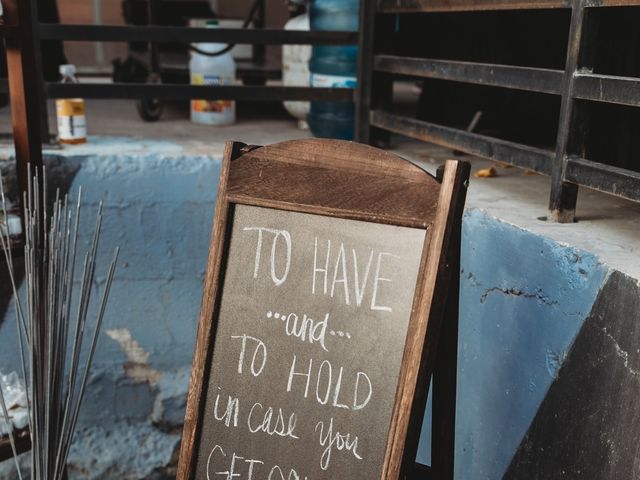 TO HAVE
...and...
TO HOLD
in case you
GET